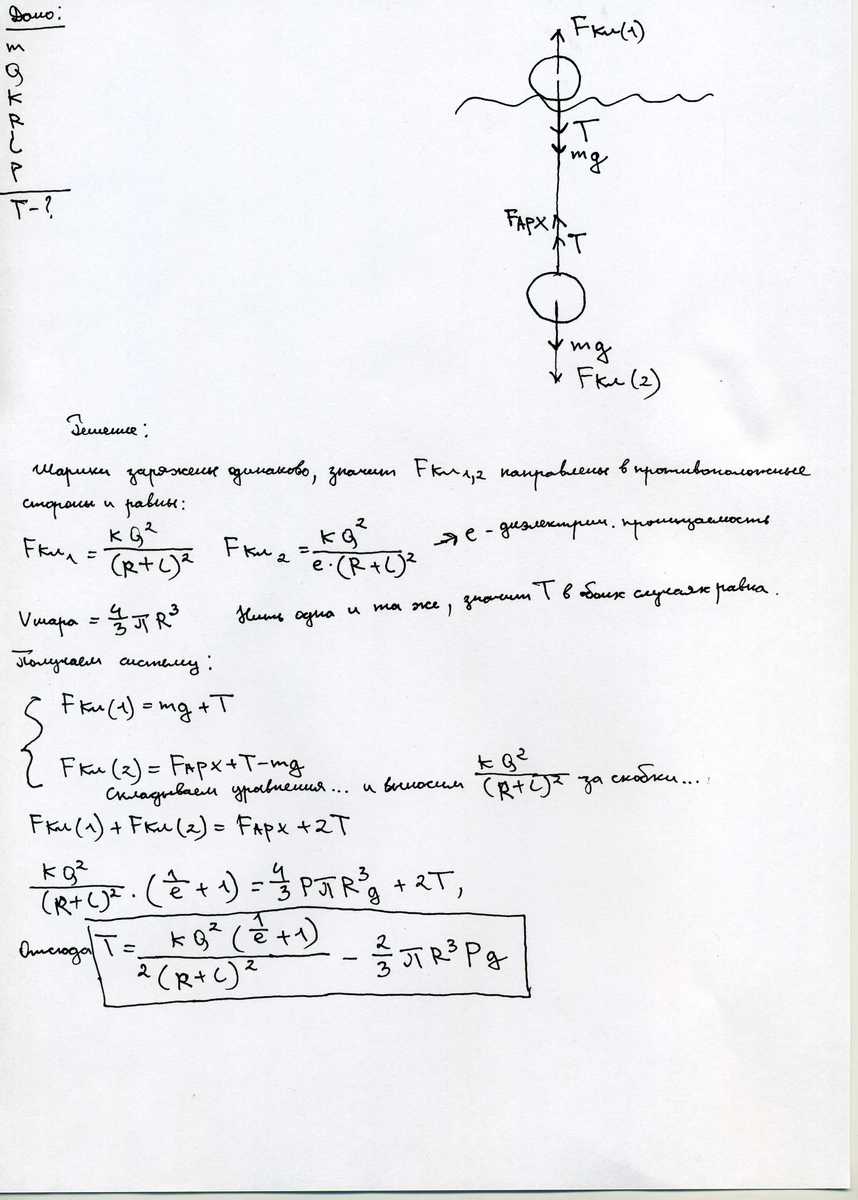 Дано:
m
Q
K
R
L
P
T-?
Fкл(1)
T
mg
FАРХ
T
mg
Fкл(2)
Решение:
Шарики заряжены одинаково, значит Fкл1,2 направлены в противоположные
стороны и равны:
Fкл1 = KQ²/(R+L)² Fкл2 = KQ²/e·(R+L)² → e - диэлектрич. проницаемость
Vшара = 4/3 πR³ Нить одна и та же, значит T в обоих случаях равна.
Получаем систему:
Fкл(1) = mg + T
Fкл(2) = FАРХ + T - mg
Складываем уравнения... и выносим KQ²/(R+L)² за скобки...
Fкл(1) + Fкл(2) = FАРХ + 2T
KQ²/(R+L)² · (1/e + 1) = 4/3 PπR³g + 2T,
Отсюда T = KQ²(1/e + 1)/2(R+L)² - 2/3 πR³Pg